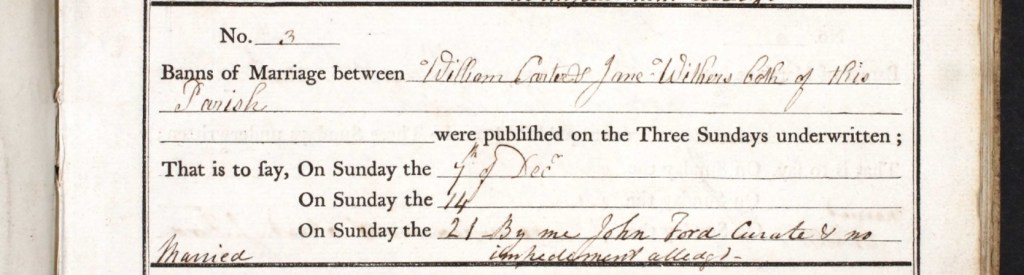 No. 3
Banns of Marriage between William Carter & Jane Withers both of this
Parish
were publiſhed on the Three Sundays underwritten;
That is to ſay, On Sunday the 7 of Decr
On Sunday the 14
On Sunday the 21 By me John Ford Curate & no
Married impediment alledgd